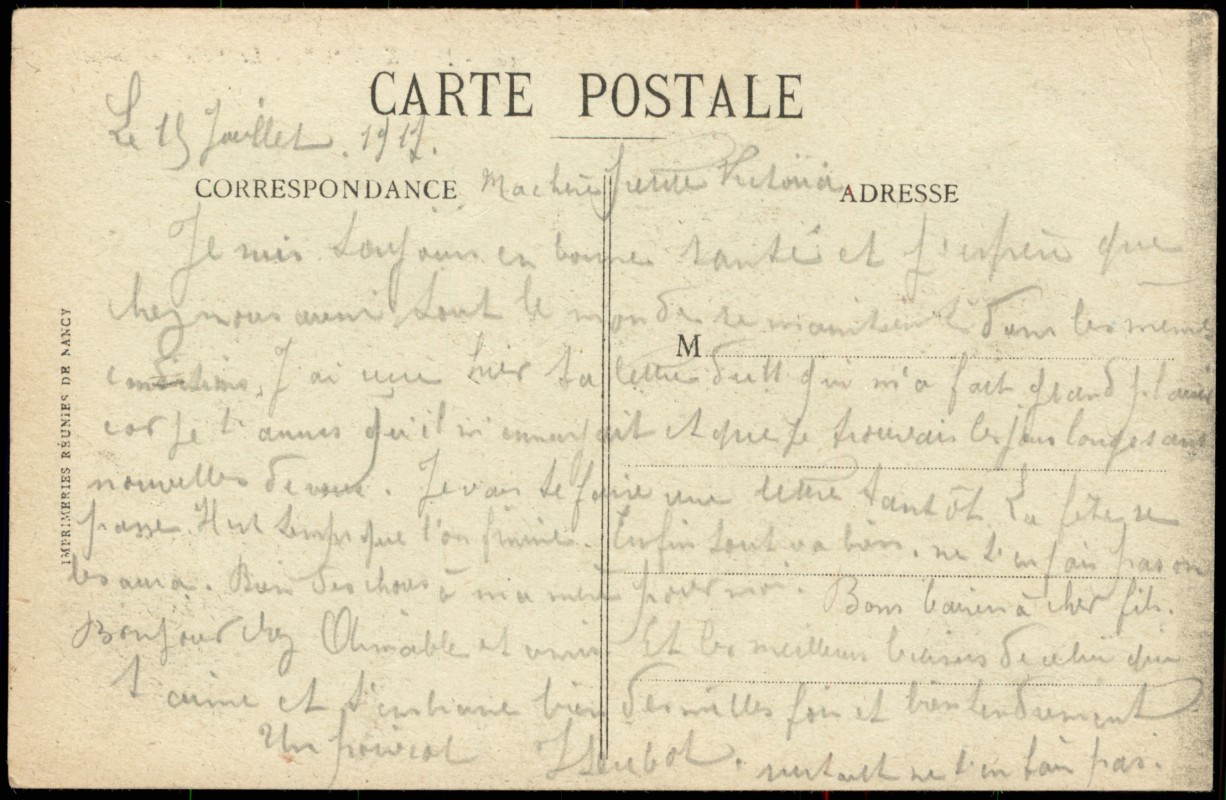 CARTE POSTALE
Le 15 Juillet 1917.
CORRESPONDANCE
Ma chère petite Victoria
ADRESSE
Je suis toujours en bonne santé et j'espère que
chez nous aussi tout le monde se maintient dans les même
M
conditions, J'ai reçu hier ta lettre du 11 qui m'a fait grand plaisir
car je t'assures qu'il m'ennuyait et que je trouvais les jours longs sans
nouvelles de vous. Je vais te faire une lettre tantôt La fête se
passe. Il est temps que l'on finisse. Enfin tout va bien. ne t'en fais pas on
les aura. Bien des choses à ma mère pour moi. Bons baisers à cher fils.
Bonjour chez Aimable et amis Et les meilleurs baisers de celui qui
t'aime et t'embrasse bien des milles fois et bien tendrement
Un poivrot surtout ne t'en fais pas.
IMPRIMERIES RÉUNIES DE NANCY